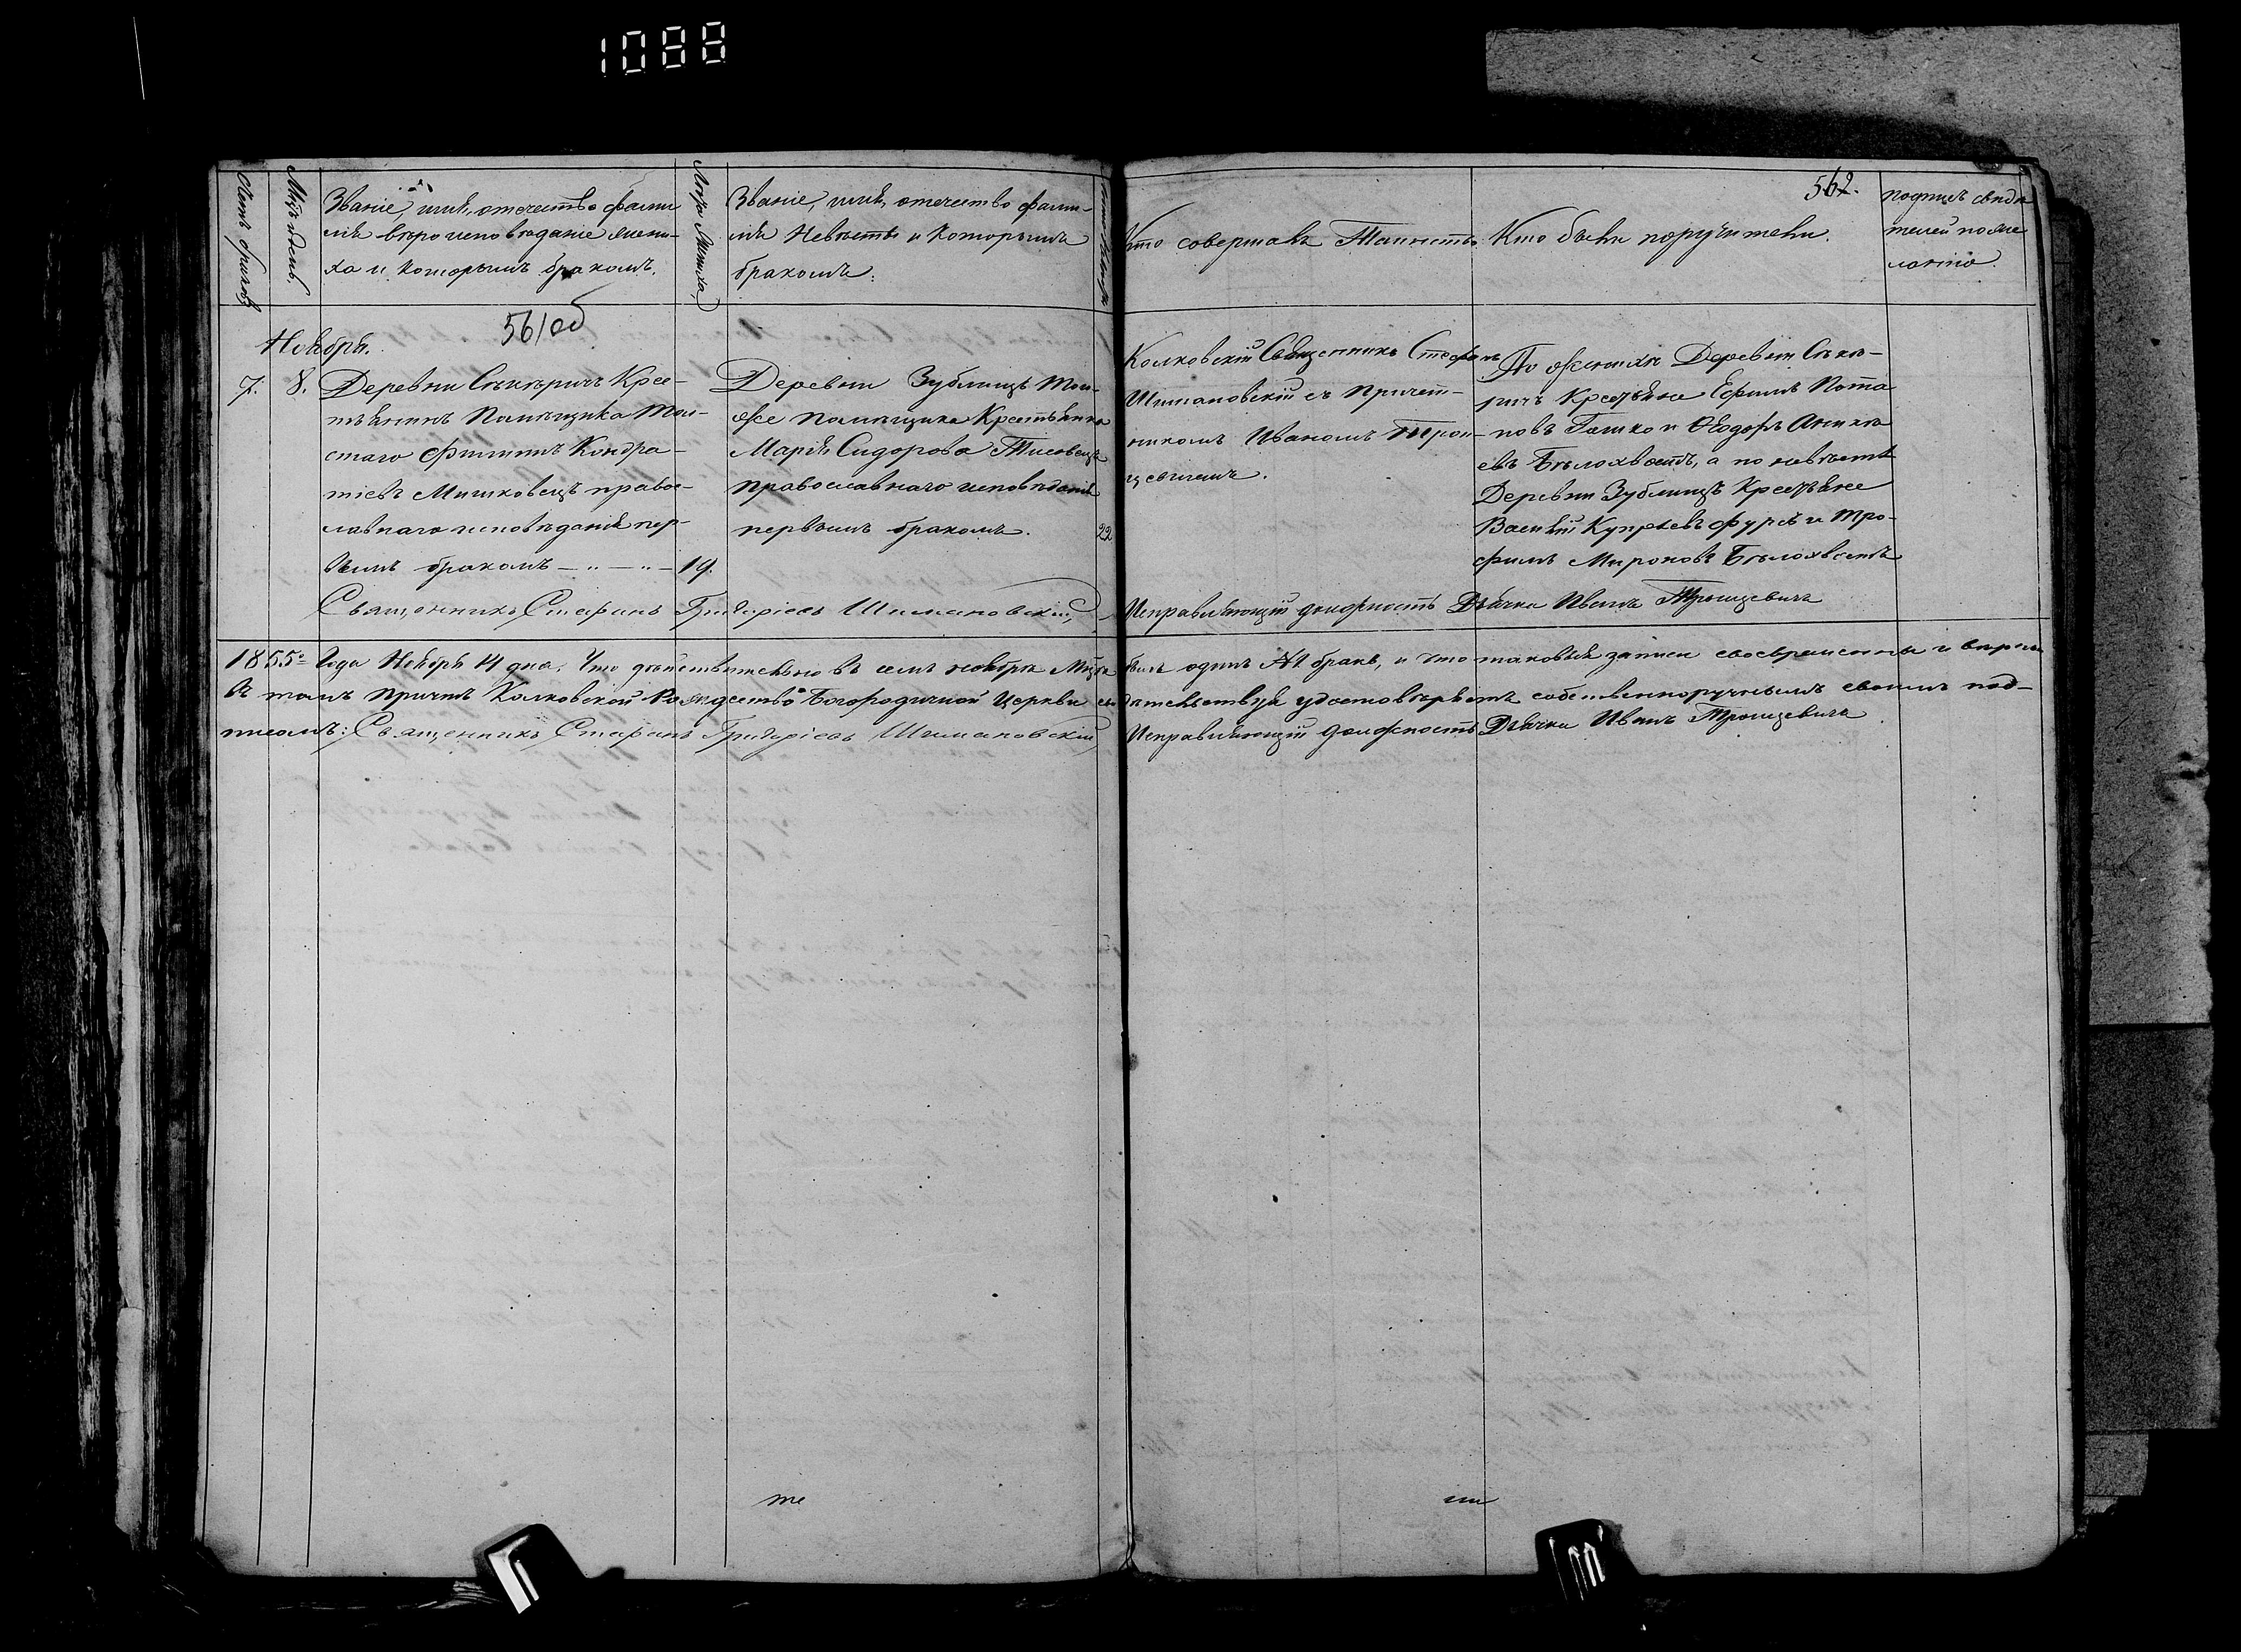 1088
562.
Счетъ браковъ
Мцъ и день.
Званіе, имя, отечество фами-
лія вѣроисповѣданіе жени-
ха и которымъ бракомъ.
Лѣта Жениха
Званіе, имя, отечество фами-
лія Невѣсты и которымъ
бракомъ.
Кто совершалъ Таинство.
Кто были поручители.
подпись свидѣ
телей по же
ланію.
561об
Ноября.
7. 8.
Деревни Сѣкѣричъ Крес-
тьянинъ Помѣщика Тол-
стаго Филиппъ Кондра-
тіевъ Мишковецъ правос-
лавнаго исповѣданія пер-
вымъ бракомъ — " — " —
19.
Деревни Зублищъ Тои-
же помѣщика Крестьянка
Марія Сидорова Тисовецъ
православнаго исповѣданія
первымъ бракомъ.
22
Колковскій Священникъ Стефанъ
Шимановскій съ причет-
никомъ Иваномъ Трои-
цевичемъ.
По женихѣ Деревни Сѣкѣ-
ричъ Крестьяне Ефимъ Пота
повъ Гошко и Ѳеодоръ Аникѣ
евъ Бѣлохвостъ, а по невѣстѣ
Деревни Зублищъ Крестьяне
Василій Купріевъ Фурсъ и Тро-
фимъ Мироновъ Бѣлохвостъ
Священникъ Стефанъ Григоріевъ Шимановскій,
Исправляющій должность Дьячка Иванъ Троицевичъ
1855го Года Ноября 14 дня. Что дѣйствительно въ семъ ноябрѣ Мцѣ былъ одинъ №1 бракъ, и что таковыя записи своевременны и вѣрны
въ томъ причтъ Колковской Рождество Богородичной Церкви свидѣтельствуя удостовѣряетъ собственноручнымъ своимъ под-
писомъ: Священникъ Стефанъ Григоріевъ Шимановскій Исправляющій должность Дьячка Иванъ Троицевичъ